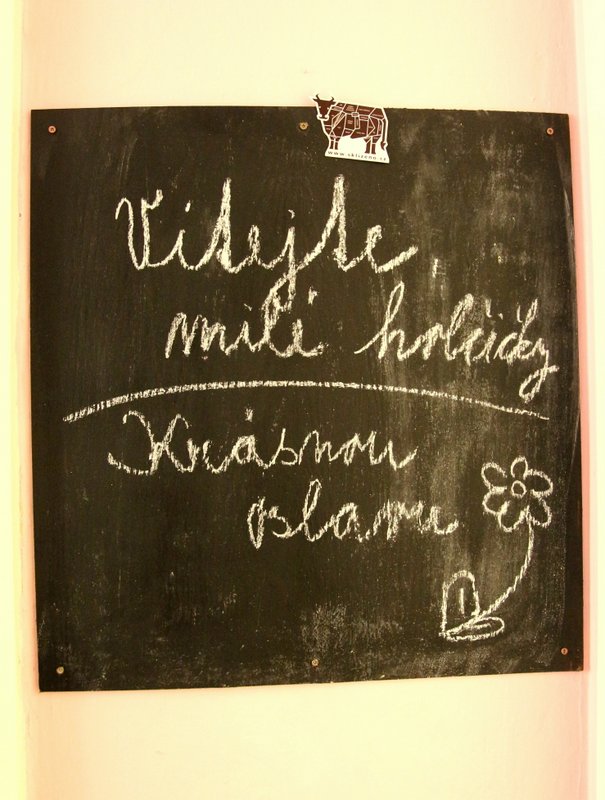 www.sklizeno.cz
Vítejte
milé holčičky
Krásnou
oslavu